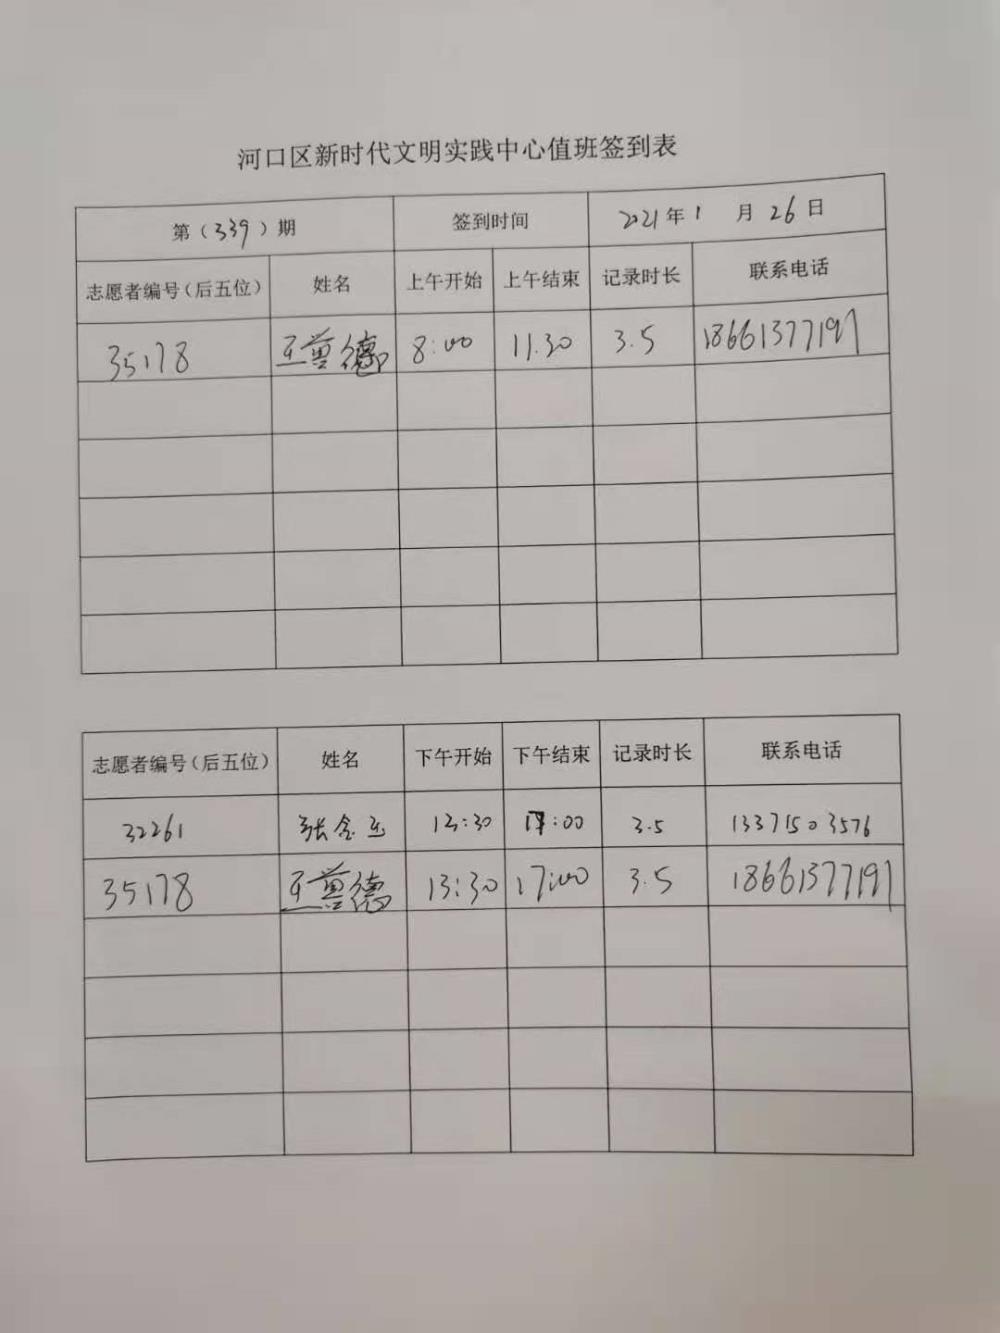 河口区新时代文明实践中心值班签到表
第（339）期 签到时间 2021年1月26日
志愿者编号（后五位） 姓名 上午开始 上午结束 记录时长 联系电话
35178 王 德 8:00 11.30 3.5 18661377197
志愿者编号（后五位） 姓名 下午开始 下午结束 记录时长 联系电话
32261 张金玉 13:30 17:00 3.5 13371503576
35178 王 德 13:30 17:00 3.5 18661377197